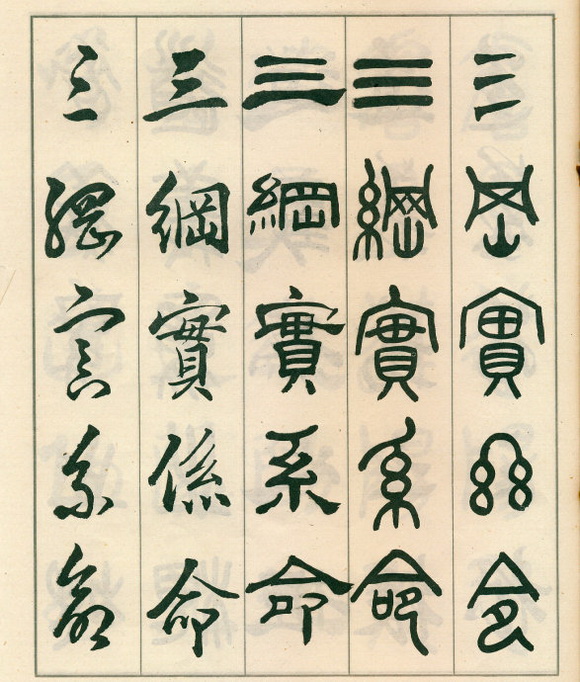 三綱實系命
三綱實系命
三綱實系命
三綱實係命
三綱實系命